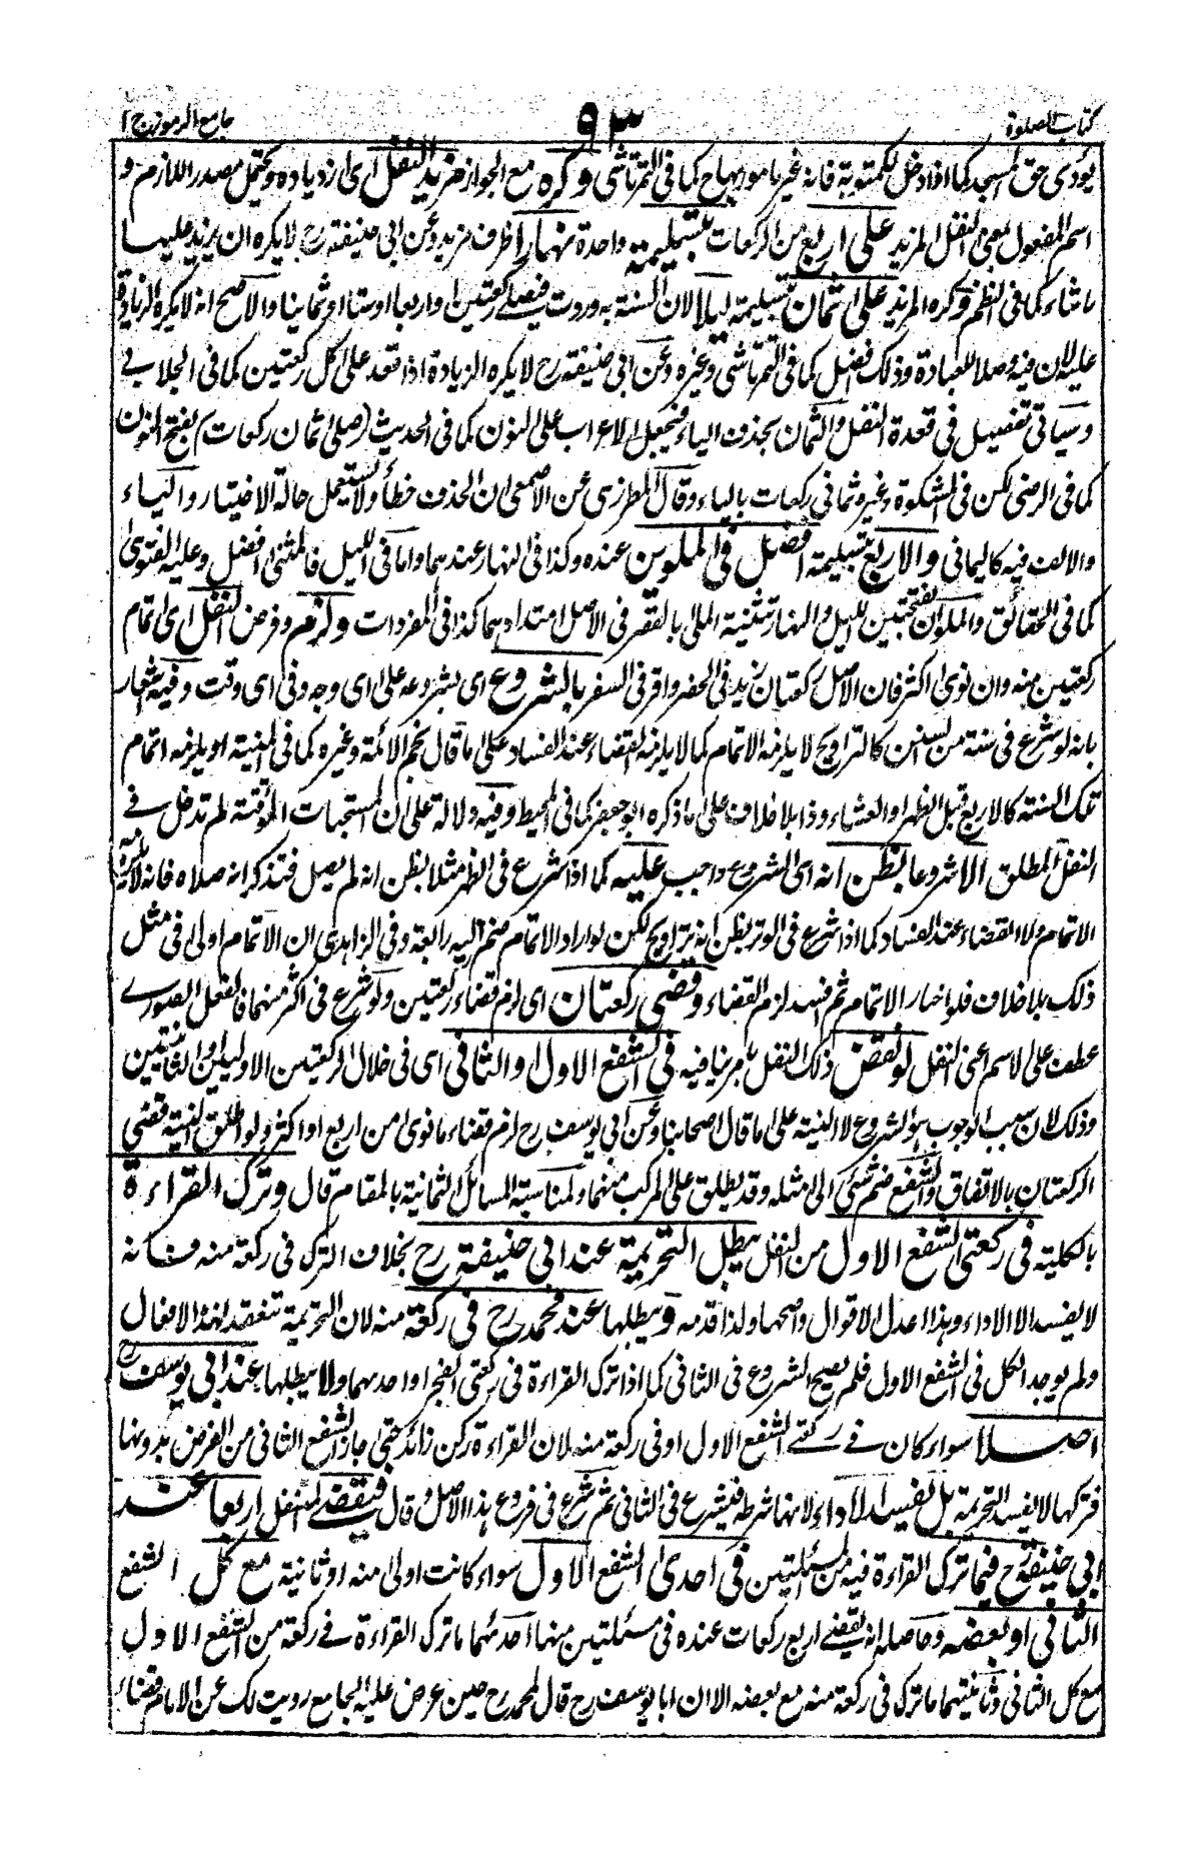 كتاب الصلوة
٩٣
جامع الرموز ج ١
يؤدى حق المسجد كما اذا دخل لمكتوبة فانه غير مامور بها ح كما فى التمرتاشى وكره مع الجواز مزيد النفل اى ازدياده ويحتمل مصدر اللازم و
اسم المفعول بمعنى النفل المزيد على اربع من الركعات بتسليمة واحدة نهارا ظرف مزيد وعن ابى حنيفة رح لا يكره ان يزيد عليها
ما شاء كما فى النظم ويكره المزيد على ثمان بتسليمة ليلا لان السنة به وردت فيصلى ركعتين او اربعا او ستا او ثمانيا والاصح انه لا يكره الزيادة
عليه لان فيه وصلا للعبادة وذلك افضل كما فى التمرتاشى وغيره وعن ابى حنيفة رح لا يكره الزيادة اذا قعد على كل ركعتين كما فى الجلابى
وسياتى تفصيل فى قعدة النفل والثمان بحذف الياء فيجعل الاعراب على النون كما فى الحديث (صلى ثمان ركعات) بفتح النون
كما فى الرضى لكن فى المشكوة وغيره ثمانى ركعات بالياء وقال المطرزى عن الاصمعى ان الحذف خطأ ولا يستعمل حالة الاختيار والياء
والالف فيه كاليمانى والاربع بتسليمة افضل فى الملوين عنده وكذا فى النهار عندهما واما فى الليل فالمثنى افضل وعليه الفتوى
كما فى الحقائق والملوان بفتحتين الليل والنهار تثنية الملا بالقصر فى الاصل امتدادهما كذا فى المفردات ولزم وفرض النفل اى اتمام
ركعتين منه وان نوى اكثر فان الاصل ركعتان زيد فى الحضر واقر فى السفر بالشروع اى بشروعه على اى وجه وفى اى وقت وفيه اشعار
بانه لو شرع فى سنة من السنن كالتراويح لا يلزمه الاتمام كما لا يلزمه القضاء عند الفساد على ما قال نجم الائمة وغيره كما فى المنية او يلزمه اتمام
تلك السنة كالاربع قبل الظهر والعشاء وذا بلا خلاف على ما ذكره ابو جعفر كما فى المحيط وفيه دلالة على ان المستحبات المؤقتة لم تدخل فى
النفل المطلق الا شروعا بظن انه اى الشروع واجب عليه كما اذا شرع فى الظهر مثلا بظن انه لم يصل فتذكر انه صلاه فانه لا يلزمه
الاتمام ولا القضاء عند الفساد كما اذا شرع فى الوتر بظن انه تراويح لكن لو اراد الاتمام ضم اليه رابعة وفى الزاهدى ان الاتمام اولى فى مثل
ذلك بلا خلاف فلو اختار الاتمام ثم فسد لزم القضاء وقضى ركعتان اى لزم قضاء ركعتين ولو شرع فى اكثر منهما فالفعل الصورى
عطف على الاسم اعنى النفل لو نقض ذلك النفل بامر ينافيه فى الشفع الاول او الثانى اى فى خلال الركعتين الاوليين او الثانيتين
وذلك لان سبب الوجوب هو الشروع لا النية على ما قال اصحابنا وعن ابى يوسف رح لزم قضاء ما نوى من اربع او اكثر ولو اطلق النية قضى
الركعتان بالاتفاق والشفع ضم شىء الى مثله وقد يطلق على المركب منهما ولمناسبة المسائل الثمانية بالمقام قال وترك القراءة
بالكلية فى ركعتى الشفع الاول من النفل يبطل التحريمة عند ابى حنيفة رح بخلاف الترك فى ركعة منه فانه
لا يفسد الا الاداء وهذا اعدل الاقوال واصحها ولذا قدمه ويبطلها عند محمد رح فى ركعة منه لان التحريمة تنعقد لهذا الافعال
ولم يوجد الكل فى الشفع الاول فلم يصح الشروع فى الثانى كما اذا ترك القراءة فى ركعتى الفجر او احدهما ولا يبطلها عند ابى يوسف رح
اصلا سواء كان فى ركعتى الشفع الاول او فى ركعة منه لان القراءة ركن زائد حتى جاز الشفع الثانى من الفرض بدونها
فتركها لا يفسد التحريمة بل يفسد الاداء لانها شرطه فيشرع فى الثانى ثم شرع فى فروع هذا الاصل وقال فيقضى المتنفل اربعا عند
ابى حنيفة رح فيما ترك القراءة فيه من المسئلتين فى احدى الشفع الاول سواء كانت اولى منه او ثانية مع كل الشفع
الثانى او بعضه وحاصله انه يقضى اربع ركعات عنده فى مسئلتين منها احدهما ما ترك القراءة فى ركعة من الشفع الاول
مع كل الثانى وثانيتهما ما ترك فى ركعة منه مع بعضه الا ان ابا يوسف رح قال لمحمد رح حين عرض عليه الجامع رويت لك عن الامام قضاء